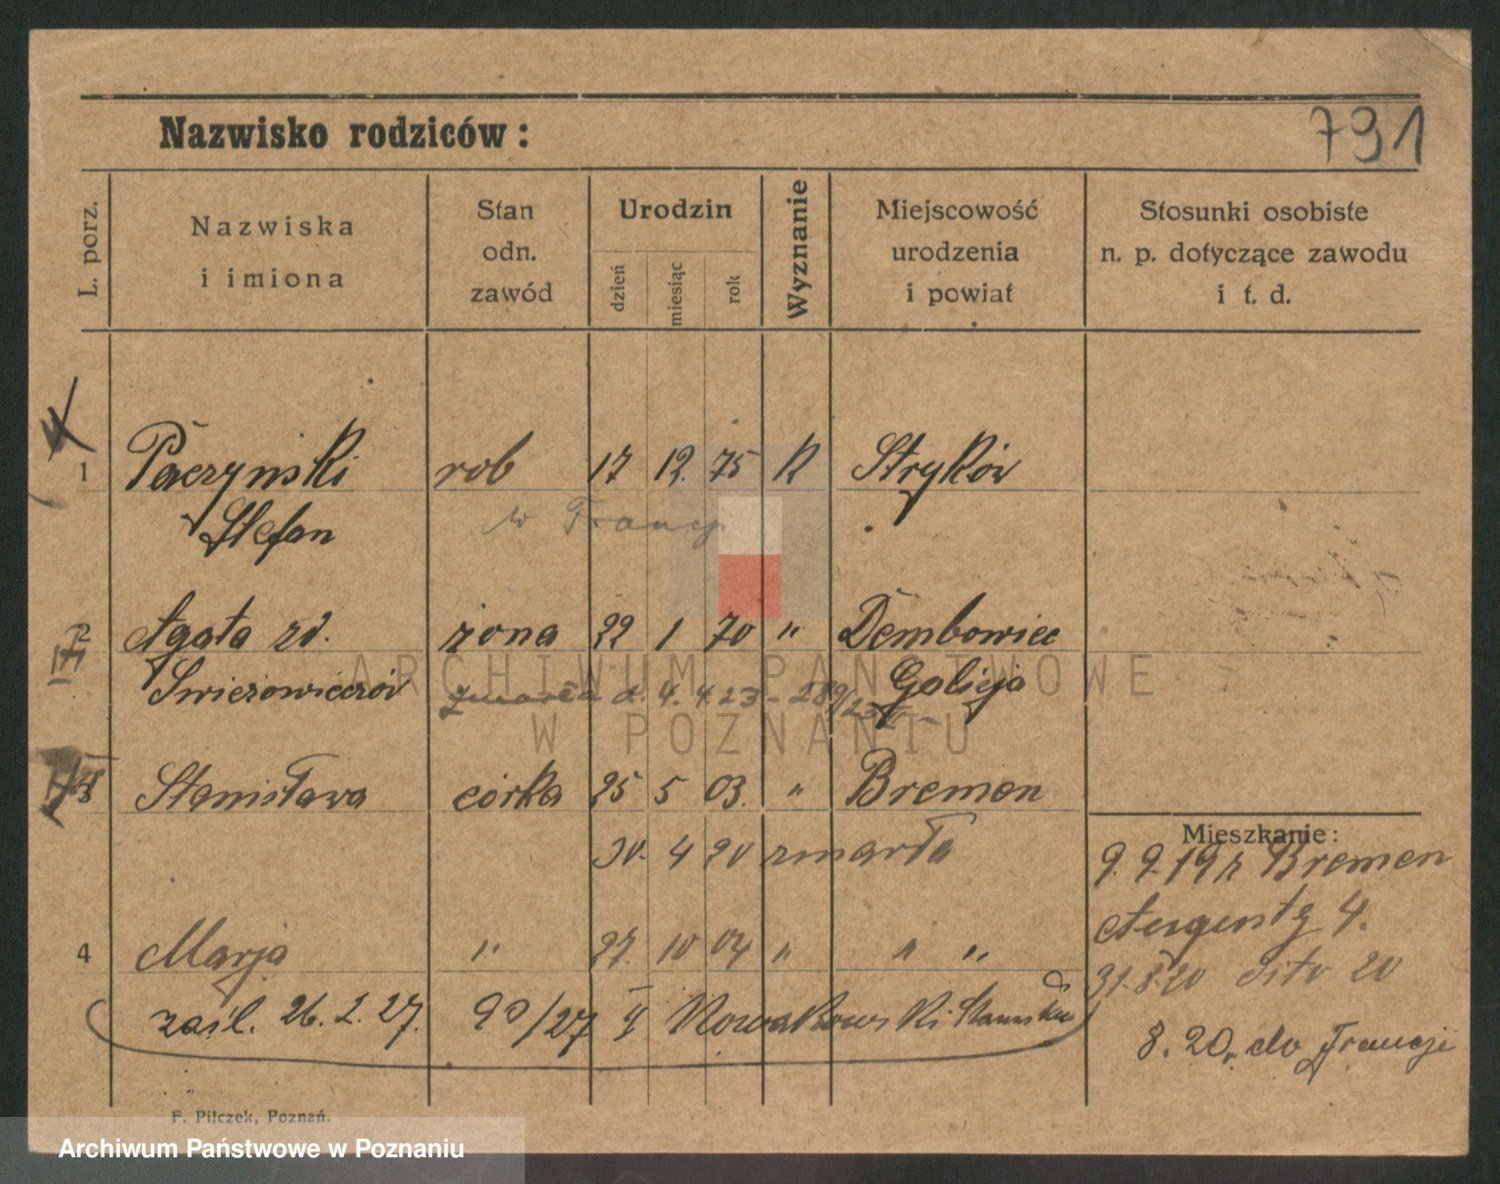 Nazwisko rodziców:
791
L. porz.
Nazwiska
i imiona
Stan
odn.
zawód
Urodzin
dzień
miesiąc
rok
Wyznanie
Miejscowość
urodzenia
i powiat
Stosunki osobiste
n. p. dotyczące zawodu
i t. d.
1 Paczynski rob 17 12. 75 K Stryków
Stefan w Francji
2 Agata zd. żona 22 1 70 " Dembowiec
Swierzowiczów zmarła d. 4. 4 23 - 289/23 Galicja
3 Stanisława córka 25 5 03. " Bremen
30. 4 20 zmarła
4 Marja " 27. 10 04 " " "
zaśl. 26. 2. 27. 90/27 II Nowakowski Stanisław
Mieszkanie:
9. 9. 19 r Bremen
Augustg 4.
31. 8. 20 dito 20
8. 20, do Francji
F. Pilczek, Poznań.
ARCHIWUM PAŃSTWOWE
W POZNANIU
Archiwum Państwowe w Poznaniu